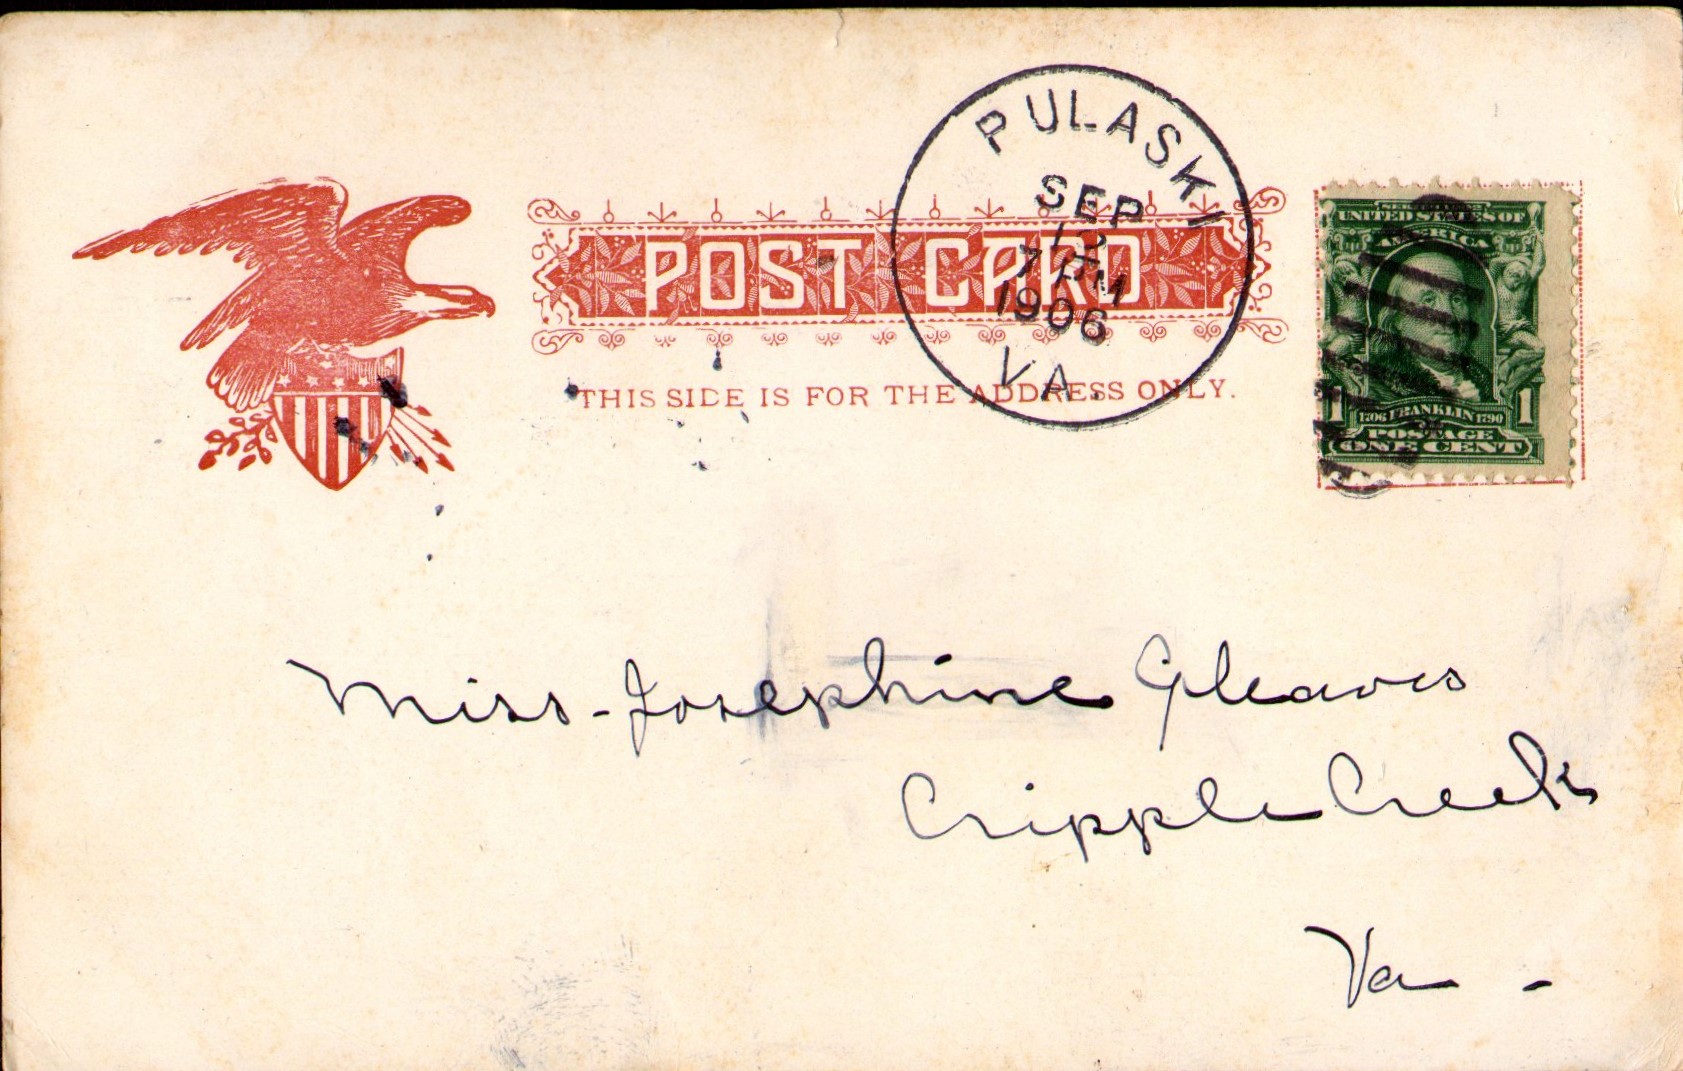 POST CARD
THIS SIDE IS FOR THE ADDRESS ONLY.
PULASKI
SEP
7 PM
1906
VA.
UNITED STATES OF
AMERICA
1 1706 FRANKLIN 1790 1
POSTAGE
ONE CENT
Miss - Josephine Gleaves
Cripple Creek
Va -